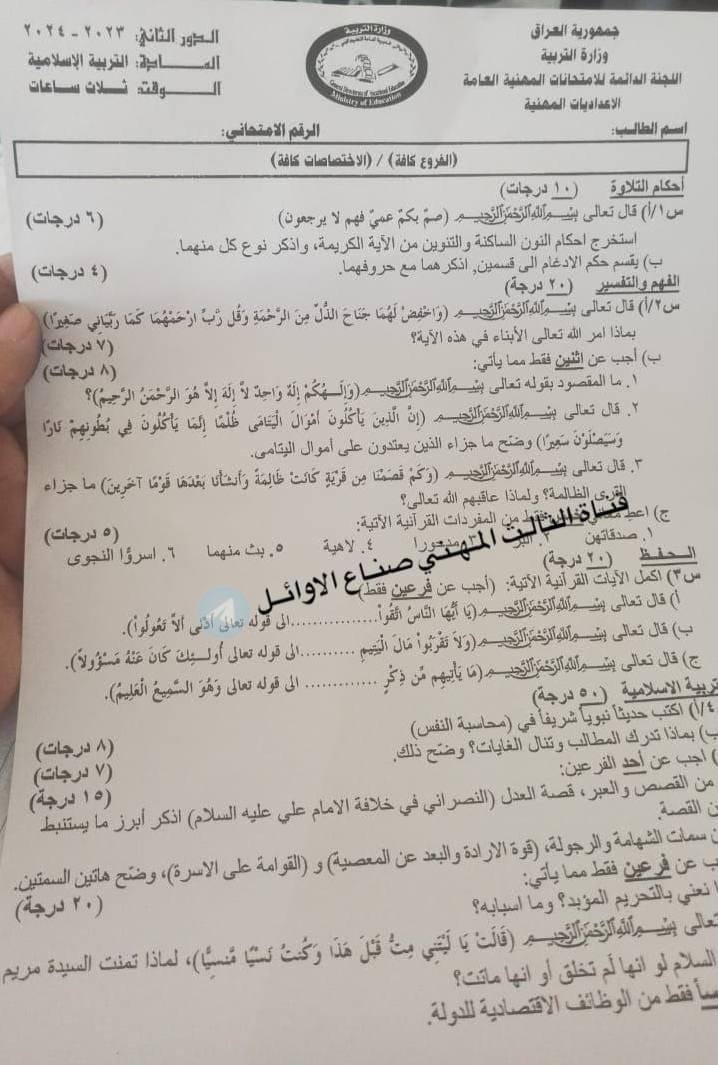 جمهورية العراق
وزارة التربية
اللجنة الدائمة للامتحانات المهنية العامة
الاعداديات المهنية
وزارة التربية
Ministry of Education
الدور الثاني: ٢٠٢٣ - ٢٠٢٤
المـــادة: التربية الإسلامية
الـــوقت: ثــلاث ســاعات
اسم الطالب:
الرقم الامتحاني:
(الفروع كافة) / (الاختصاصات كافة)
أحكام التلاوة (١٠ درجات)
س١/أ) قال تعالى بسم الله الرحمن الرحيم (صمٌ بكمٌ عميٌ فهم لا يرجعون) (٦ درجات)
استخرج احكام النون الساكنة والتنوين من الآية الكريمة، واذكر نوع كل منهما.
ب) يقسم حكم الادغام الى قسمين, اذكرهما مع حروفهما. (٤ درجات)
الفهم والتفسير (٢٠ درجة)
س٢/أ) قال تعالى بسم الله الرحمن الرحيم (وَاخْفِضْ لَهُمَا جَنَاحَ الذُّلِّ مِنَ الرَّحْمَةِ وَقُل رَّبِّ ارْحَمْهُمَا كَمَا رَبَّيَانِي صَغِيرًا)
بماذا امر الله تعالى الأبناء في هذه الآية؟ (٧ درجات)
ب) أجب عن اثنين فقط مما يأتي: (٨ درجات)
١. ما المقصود بقوله تعالى بسم الله الرحمن الرحيم (وَإِلَـهُكُمْ إِلَهٌ وَاحِدٌ لاَّ إِلَهَ إِلاَّ هُوَ الرَّحْمَنُ الرَّحِيمُ)؟
٢. قال تعالى بسم الله الرحمن الرحيم (إِنَّ الَّذِينَ يَأْكُلُونَ أَمْوَالَ الْيَتَامَى ظُلْمًا إِنَّمَا يَأْكُلُونَ فِي بُطُونِهِمْ نَارًا
وَسَيَصْلَوْنَ سَعِيرًا) وضّح ما جزاء الذين يعتدون على أموال اليتامى.
٣. قال تعالى بسم الله الرحمن الرحيم (وَكَمْ قَصَمْنَا مِن قَرْيَةٍ كَانَتْ ظَالِمَةً وَأَنشَأْنَا بَعْدَهَا قَوْمًا آخَرِينَ) ما جزاء
القرى الظالمة؟ ولماذا عاقبهم الله تعالى؟
ج) اعط فقط من المفردات القرآنية الآتية: (٥ درجات)
١. صدقاتهن ٢. البر ٣. مدحورا ٤. لاهية ٥. بث منهما ٦. اسروا النجوى
قناة الثالث المهني صناع الاوائل
الحــفظ (٢٠ درجة)
س٣) اكمل الآيات القرآنية الآتية: (أجب عن فرعين فقط)
أ) قال تعالى بسم الله الرحمن الرحيم (يَا أَيُّهَا النَّاسُ اتَّقُواْ...............الى قوله تعالى أَدْنَى أَلاَّ تَعُولُواْ).
ب) قال تعالى بسم الله الرحمن الرحيم (وَلاَ تَقْرَبُواْ مَالَ الْيَتِيمِ ..........الى قوله تعالى أُولـئِكَ كَانَ عَنْهُ مَسْؤُولاً).
ج) قال تعالى بسم الله الرحمن الرحيم (مَا يَأْتِيهِم مِّن ذِكْرٍ ............. الى قوله تعالى وَهُوَ السَّمِيعُ الْعَلِيمُ).
تربية الاسلامية (٥٠ درجة)
٤/أ) اكتب حديثاً نبوياً شريفاً في (محاسبة النفس) (٨ درجات)
ب) بماذا تدرك المطالب وتنال الغايات؟ وضّح ذلك. (٧ درجات)
) اجب عن أحد الفرعين: (١٥ درجة)
من القصص والعبر، قصة العدل (النصراني في خلافة الامام علي عليه السلام) اذكر أبرز ما يستنبط
القصة.
سمات الشهامة والرجولة، (قوة الارادة والبعد عن المعصية) و (القوامة على الاسرة)، وضّح هاتين السمتين.
ب عن فرعين فقط مما يأتي: (٢٠ درجة)
نعني بالتحريم المؤبد؟ وما اسبابه؟
بسم الله الرحمن الرحيم (قَالَتْ يَا لَيْتَنِي مِتُّ قَبْلَ هَذَا وَكُنتُ نَسْيًا مَّنسِيًّا)، لماذا تمنت السيدة مريم
السلام لو انها لم تخلق أو انها ماتت؟
فقط من الوظائف الاقتصادية للدولة.